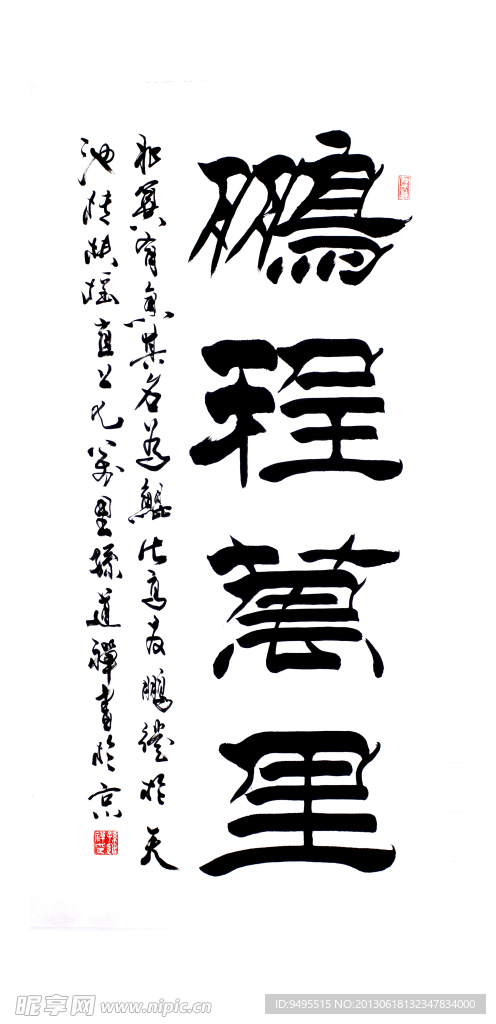 鵬程萬里
北冥有魚其名為鯤化為鵬於天
池搖直上九萬里孫道禪書於京
昵享网 www.nipic.cn
ID:9495515 NO:20130618132347834000